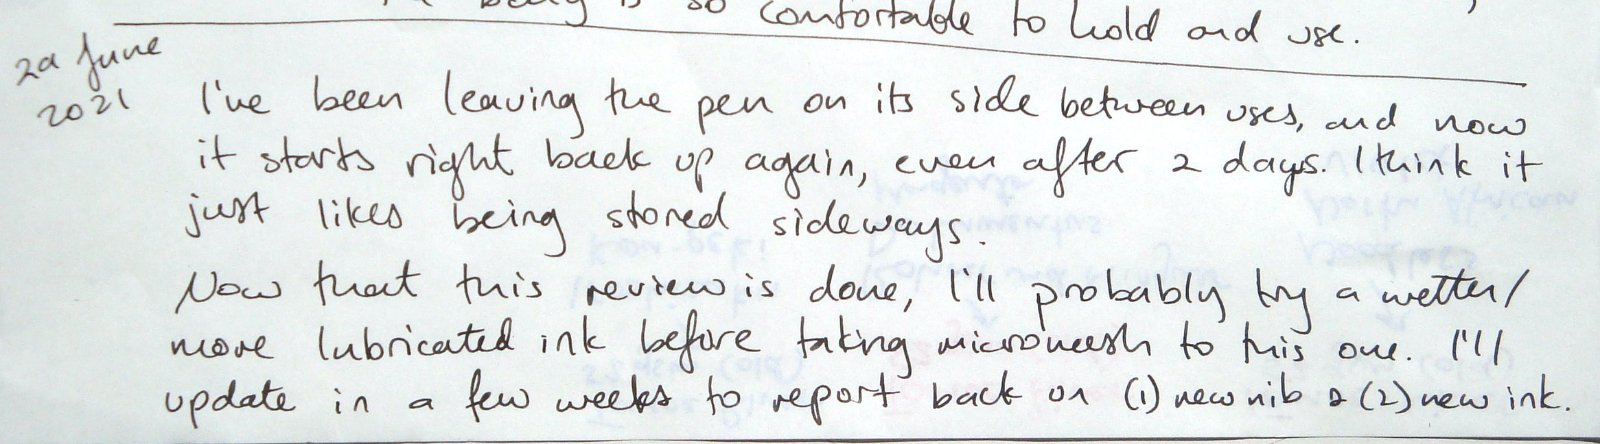 is so comfortable to hold and use.
29 June
2021
I've been leaving the pen on its side between uses, and now
it starts right back up again, even after 2 days. I think it
just likes being stored sideways.
Now that this review is done, I'll probably try a wetter/
more lubricated ink before taking micromesh to this one. I'll
update in a few weeks to report back on (1) new nib & (2) new ink.